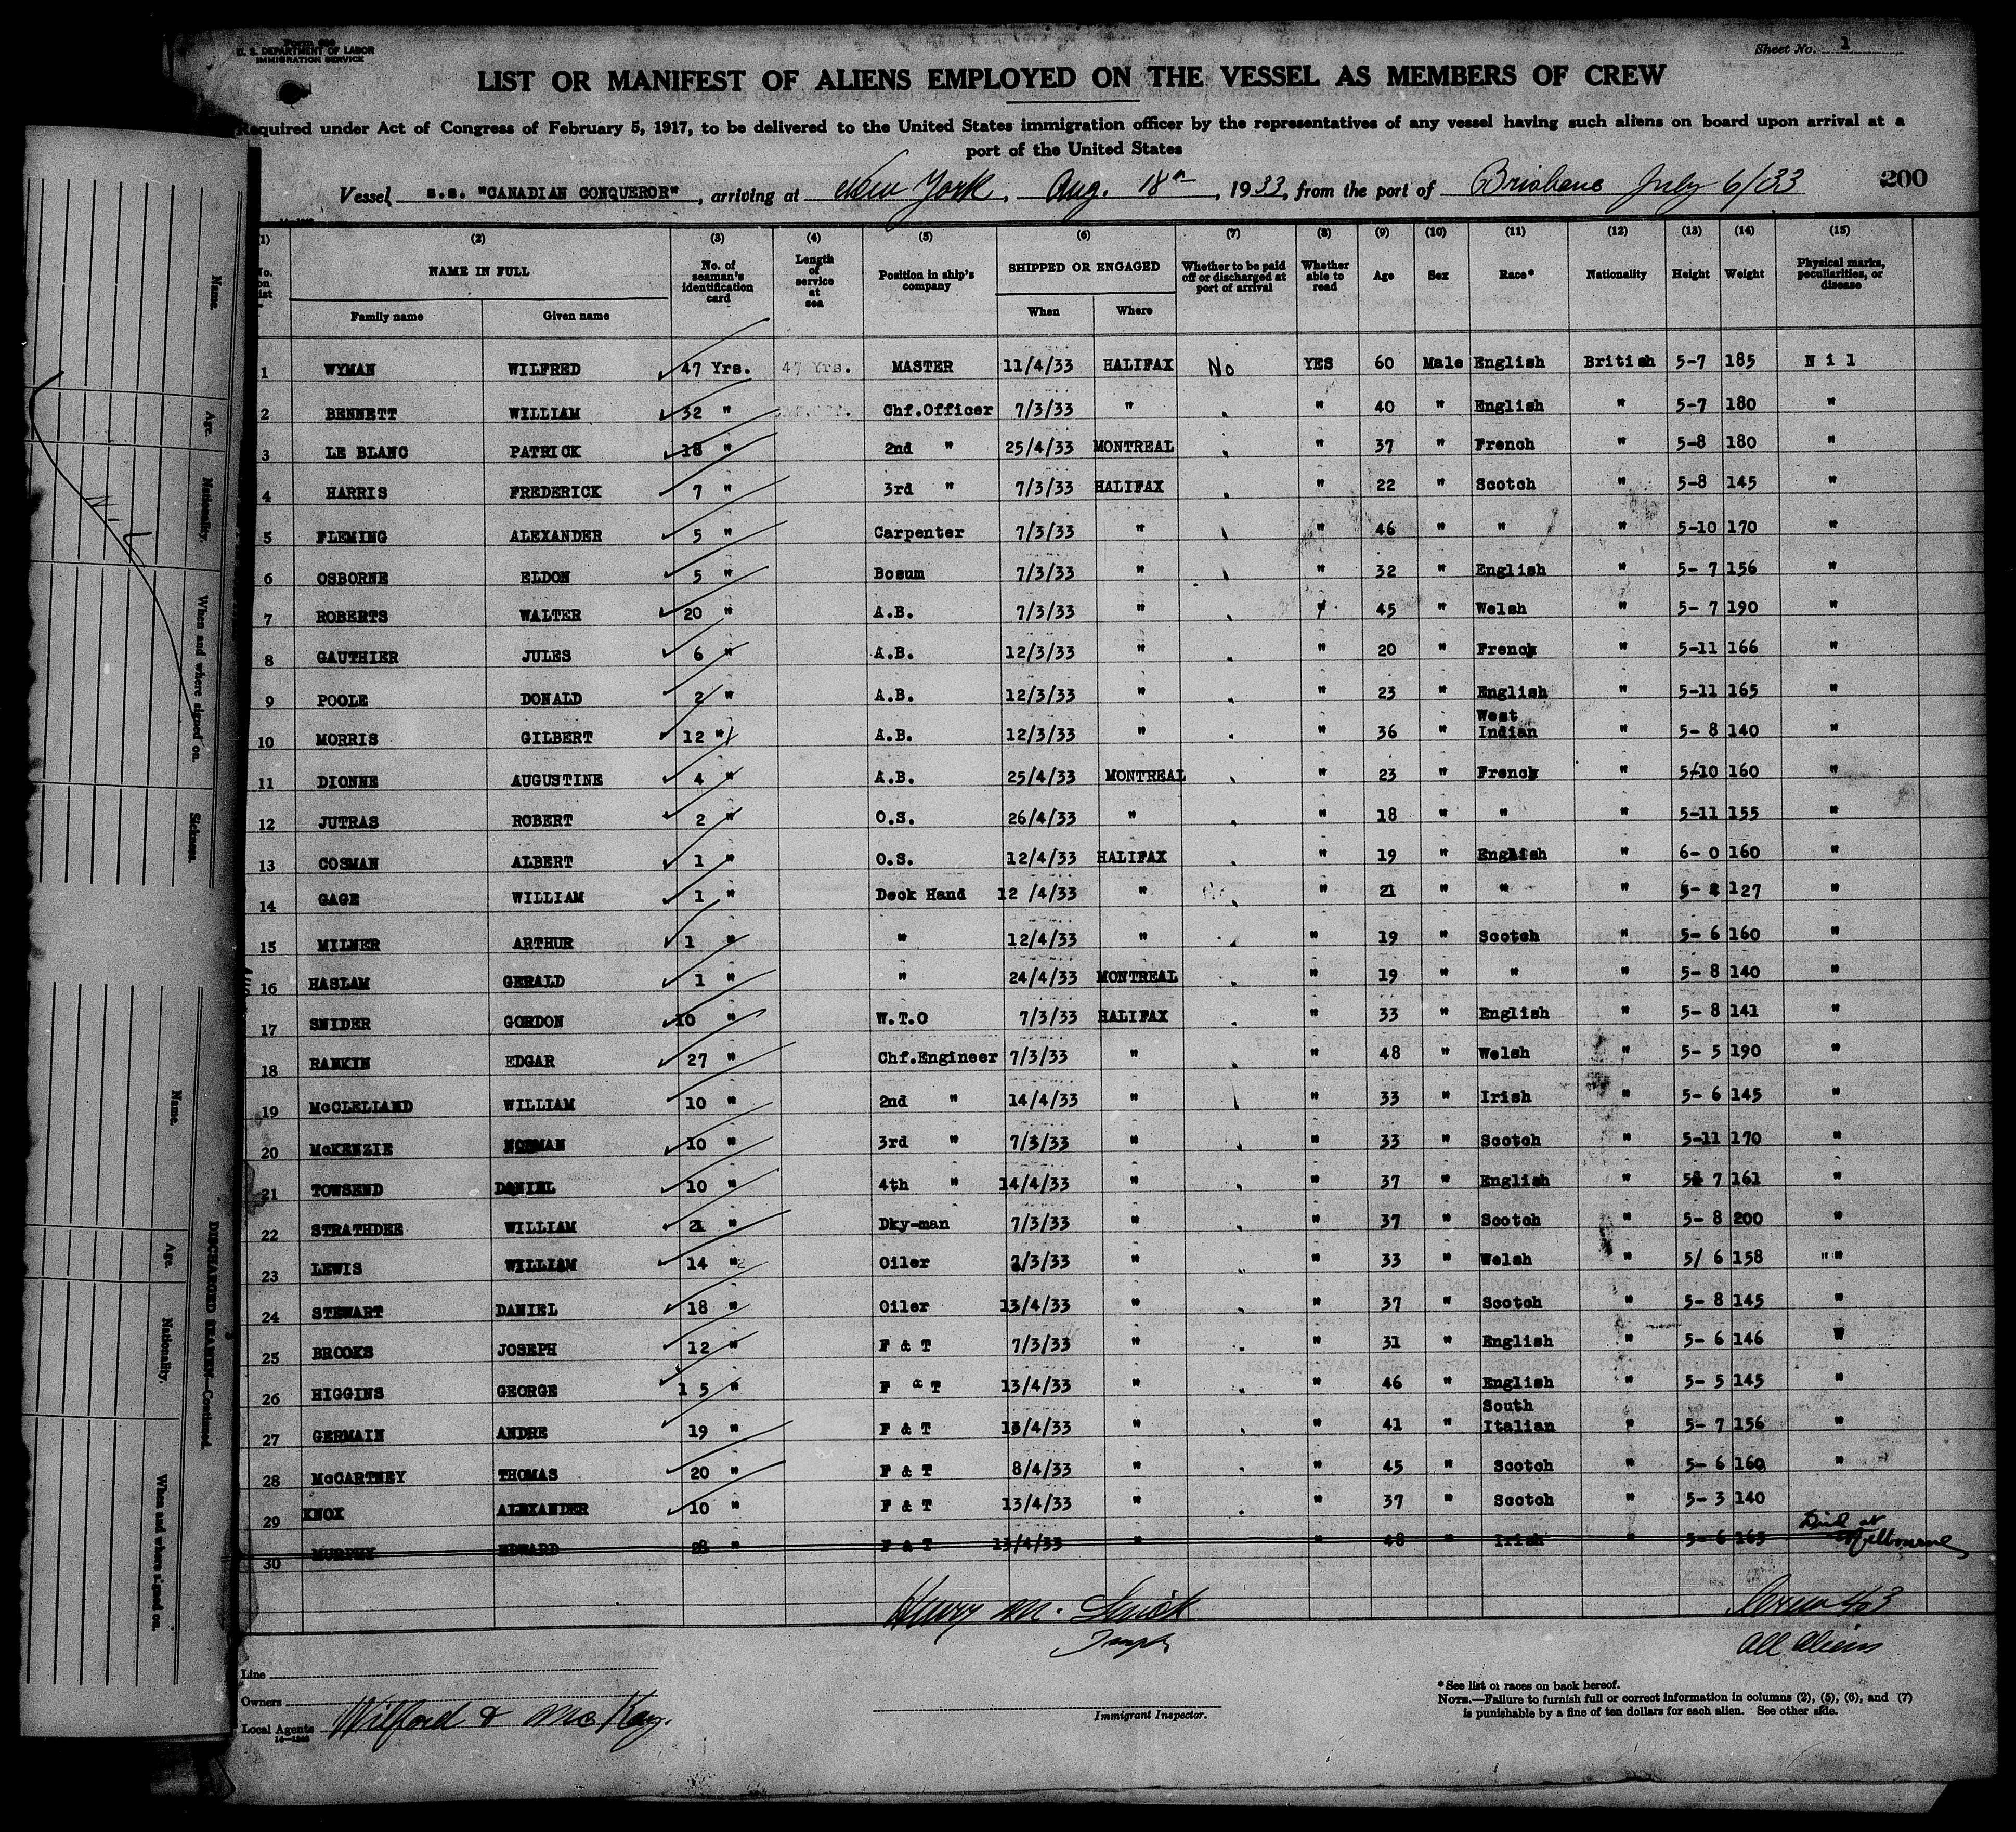 Form 689
U. S. DEPARTMENT OF LABOR
IMMIGRATION SERVICE
Sheet No. 1
LIST OR MANIFEST OF ALIENS EMPLOYED ON THE VESSEL AS MEMBERS OF CREW
Required under Act of Congress of February 5, 1917, to be delivered to the United States immigration officer by the representatives of any vessel having such aliens on board upon arrival at a
port of the United States
Vessel s.s. "CANADIAN CONQUEROR", arriving at New York, Aug. 18th, 1933, from the port of Brisbane July 6/33 200
(1) (2) (3) (4) (5) (6) (7) (8) (9) (10) (11) (12) (13) (14) (15)
No. on list NAME IN FULL No. of seaman's identification card Length of service at sea Position in ship's company SHIPPED OR ENGAGED Whether to be paid off or discharged at port of arrival Whether able to read Age Sex Race* Nationality Height Weight Physical marks, peculiarities, or disease
Family name Given name When Where
1 WYMAN WILFRED 47 Yrs. 47 Yrs. MASTER 11/4/33 HALIFAX No YES 60 Male English British 5-7 185 Nil
2 BENNETT WILLIAM 32 " Chf.Officer 7/3/33 " " 40 " English " 5-7 180 "
3 LE BLANC PATRICK 18 " 2nd " 25/4/33 MONTREAL " 37 " French " 5-8 180 "
4 HARRIS FREDERICK 7 " 3rd " 7/3/33 HALIFAX " 22 " Scotch " 5-8 145 "
5 FLEMING ALEXANDER 5 " Carpenter 7/3/33 " " 46 " " " 5-10 170 "
6 OSBORNE ELDON 5 " Bosum 7/3/33 " " 32 " English " 5- 7 156 "
7 ROBERTS WALTER 20 " A.B. 7/3/33 " " 45 " Welsh " 5- 7 190 "
8 GAUTHIER JULES 6 " A.B. 12/3/33 " " 20 " French " 5-11 166 "
9 POOLE DONALD 2 " A.B. 12/3/33 " " 23 " English " 5-11 165 "
10 MORRIS GILBERT 12 " A.B. 12/3/33 " " 36 " West Indian " 5- 8 140 "
11 DIONNE AUGUSTINE 4 " A.B. 25/4/33 MONTREAL " 23 " French " 5-10 160 "
12 JUTRAS ROBERT 2 " O.S. 26/4/33 " " 18 " " " 5-11 155 "
13 COSMAN ALBERT 1 " O.S. 12/4/33 HALIFAX " 19 " English " 6- 0 160 "
14 GAGE WILLIAM 1 " Deck Hand 12 /4/33 " " 21 " " " 127 "
15 MILNER ARTHUR 1 " " 12/4/33 " " 19 " Scotch " 5- 6 160 "
16 HASLAM GERALD 1 " " 24/4/33 MONTREAL " 19 " " " 5- 8 140 "
17 SNIDER GORDON 10 " W.T.O 7/3/33 HALIFAX " 33 " English " 5- 8 141 "
18 RANKIN EDGAR 27 " Chf.Engineer 7/3/33 " " 48 " Welsh " 5- 5 190 "
19 McCLELLAND WILLIAM 10 " 2nd " 14/4/33 " " 33 " Irish " 5- 6 145 "
20 McKENZIE NORMAN 10 " 3rd " 7/3/33 " " 33 " Scotch " 5-11 170 "
21 TOWSEND DANIEL 10 " 4th " 14/4/33 " " 37 " English " 5- 7 161 "
22 STRATHDEE WILLIAM 21 " Dky-man 7/3/33 " " 37 " Scotch " 5- 8 200 "
23 LEWIS WILLIAM 14 " Oiler 7/3/33 " " 33 " Welsh " 5/ 6 158 "
24 STEWART DANIEL 18 " Oiler 13/4/33 " " 37 " Scotch " 5- 8 145 "
25 BROOKS JOSEPH 12 " F & T 7/3/33 " " 31 " English " 5- 6 146 "
26 HIGGINS GEORGE 1 5 " F & T 13/4/33 " " 46 " English " 5- 5 145 "
27 GERMAIN ANDRE 19 " F & T 13/4/33 " " 41 " South Italian " 5- 7 156 "
28 McCARTNEY THOMAS 20 " F & T 8/4/33 " " 45 " Scotch " 5- 6 160 "
29 KNOX ALEXANDER 10 " F & T 13/4/33 " " 37 " Scotch " 5- 3 140
30 MURPHY EDWARD 28 " F & T 13/4/33 " " 48 " Irish " 5- 6 165 Died at Melbourne
Henry M.
Crew 43
All Aliens
Line
Owners
Local Agents Wilford & McKay.
14—1240
Immigrant Inspector.
*See list of races on back hereof.
NOTE.—Failure to furnish full or correct information in columns (2), (5), (6), and (7)
is punishable by a fine of ten dollars for each alien. See other side.
Name.
Age.
Nationality.
When and where signed on.
Sickness.
Nil
DISCHARGED SEAMEN—Continued.
Name.
Age.
Nationality.
When and where signed on.